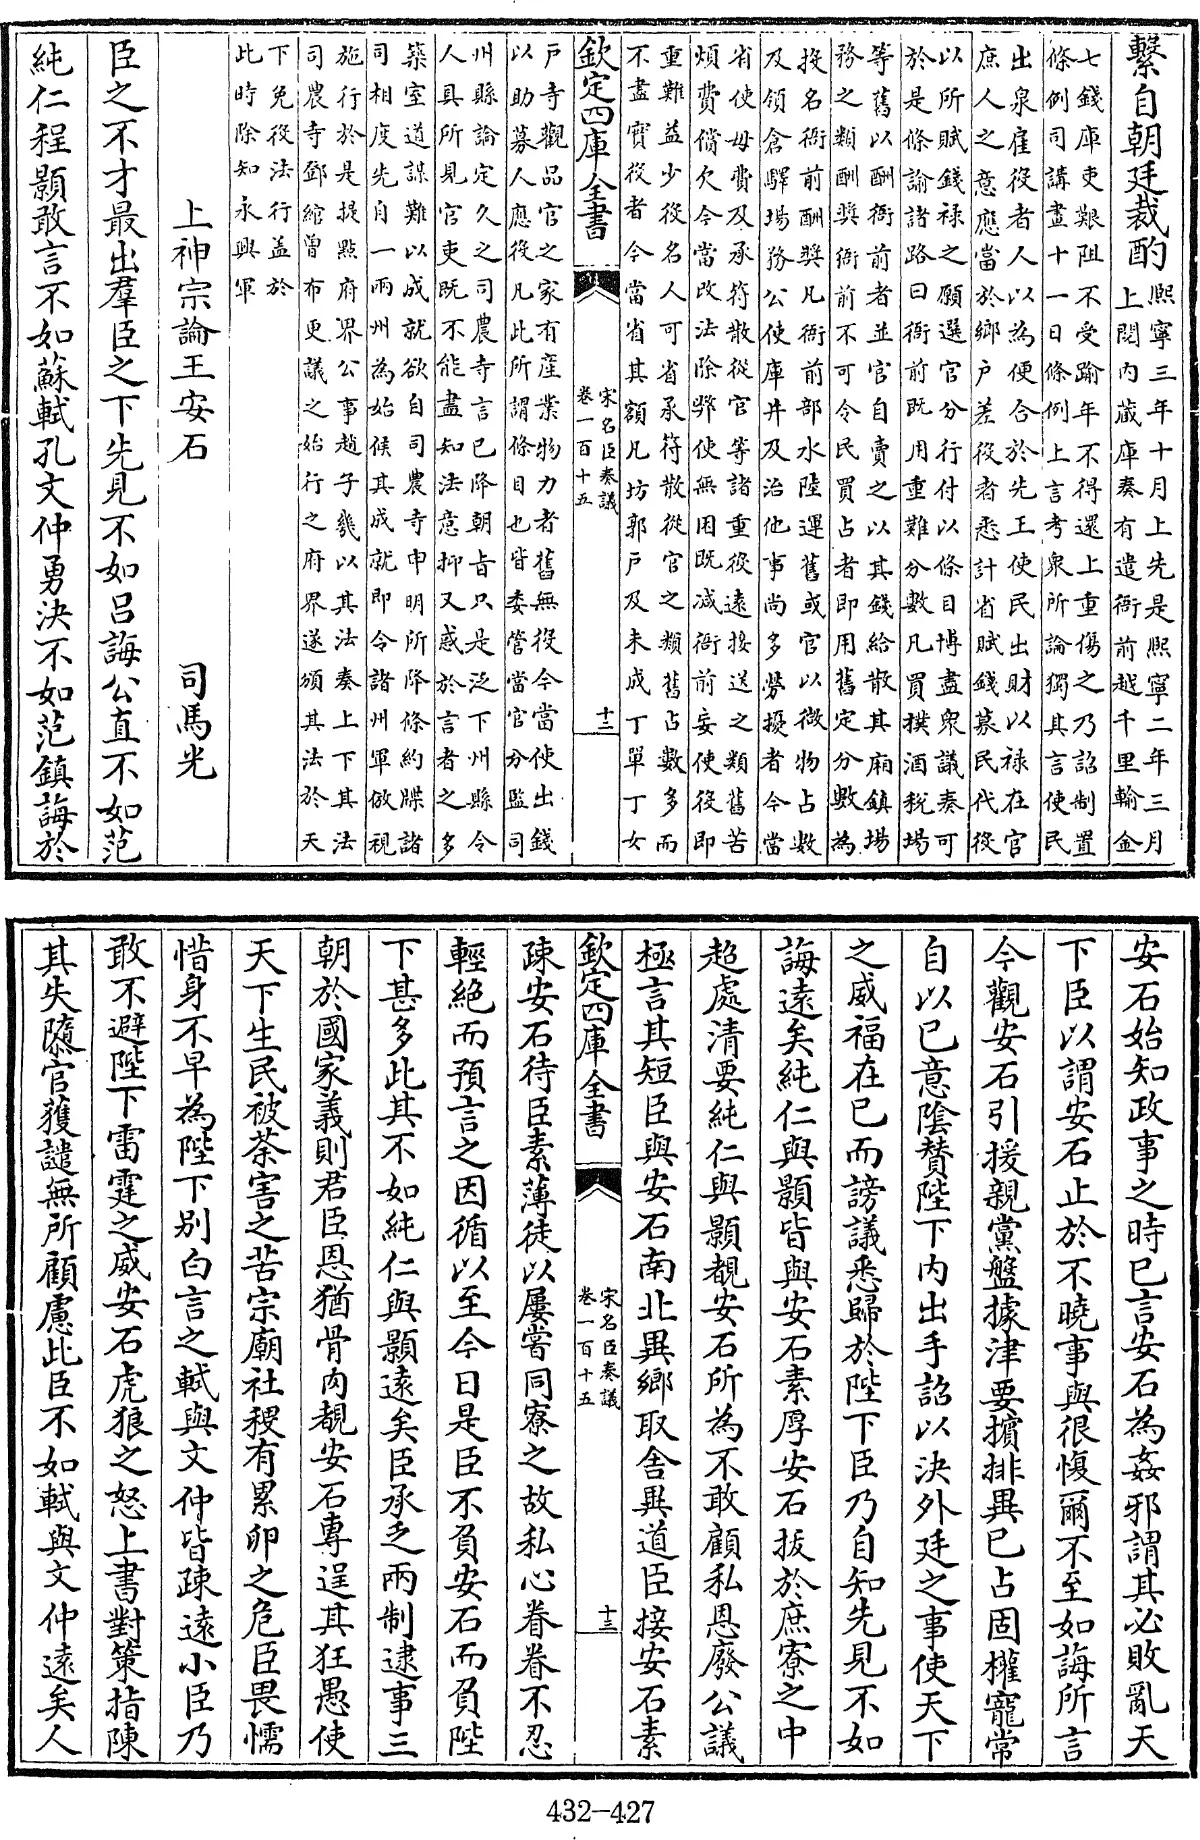 繫自朝廷裁酌
熙寧三年十月上先是熙寧二年三月
上閱内藏庫奏有遣衙前越千里輸金
七錢庫吏艱阻不受踰年不得還上重傷之乃詔制置
條例司講畫十一日條例上言考衆所論獨其言使民
出泉雇役者人以為便合於先王使民出財以禄在官
庶人之意應當於鄉戶差役者悉計省賦錢募民代役
以所賦錢禄之願選官分行付以條目博盡衆議奏可
於是條諭諸路曰衙前既用重難分數凡買撲酒税場
等舊以酬衙前者並官自賣之以其錢給散其廂鎮場
務之類酬奬衙前不可令民買占者即用舊定分數為
投名衙前酬奬凡衙前部水陸運舊或官以微物占數
及領倉驛場務公使庫井及治他事尚多勞擾者今當
省使毋費及承符散從官等諸重役遠接送之類舊苦
煩費償欠今當改法除弊使無困既減衙前妄使役即
重難益少役名人可省承符散從官之類舊占數多而
不盡實役者今當省其額凡坊郭戶及未成丁單丁女
欽定四庫全書
宋名臣奏議
卷一百十五
十二
戶寺觀品官之家有産業物力者舊無役今當使出錢
以助募人應役凡此所謂條目也皆委管當官分監司
州縣論定久之司農寺言已降朝㫖只是泛下州縣令
人具所見官吏既不能盡知法意抑又惑於言者之多
築室道謀難以成就欲自司農寺申明所降條約牒諸
司相度先自一兩州為始候其成就即令諸州軍倣視
施行於是提點府界公事趙子幾以其法奏上下其法
司農寺鄧綰曾布更議之始行之府界遂頒其法於天
下免役法行盖於
此時除知永興軍
上神宗論王安石　司馬光
臣之不才最出羣臣之下先見不如呂誨公直不如范
純仁程顥敢言不如蘇軾孔文仲勇決不如范鎮誨於
安石始知政事之時已言安石為姦邪謂其必敗亂天
下臣以謂安石止於不曉事與很愎爾不至如誨所言
今觀安石引援親黨盤據津要擯排異已占固權寵常
自以已意陰贊陛下内出手詔以決外廷之事使天下
之威福在已而謗議悉歸於陛下臣乃自知先見不如
誨遠矣純仁與顥皆與安石素厚安石拔於庶寮之中
超處清要純仁與顥覩安石所為不敢顧私恩廢公議
極言其短臣與安石南北異鄉取舍異道臣接安石素
欽定四庫全書
宋名臣奏議
卷一百十五
十三
疎安石待臣素薄徒以屢嘗同寮之故私心眷眷不忍
輕絶而預言之因循以至今日是臣不負安石而負陛
下甚多此其不如純仁與顥遠矣臣承乏兩制逮事三
朝於國家義則君臣恩猶骨肉覩安石專逞其狂愚使
天下生民被荼害之苦宗廟社稷有累卵之危臣畏懦
惜身不早為陛下别白言之軾與文仲皆疎遠小臣乃
敢不避陛下雷霆之威安石虎狼之怒上書對策指陳
其失隳官獲譴無所顧慮此臣不如軾與文仲遠矣人
432-427